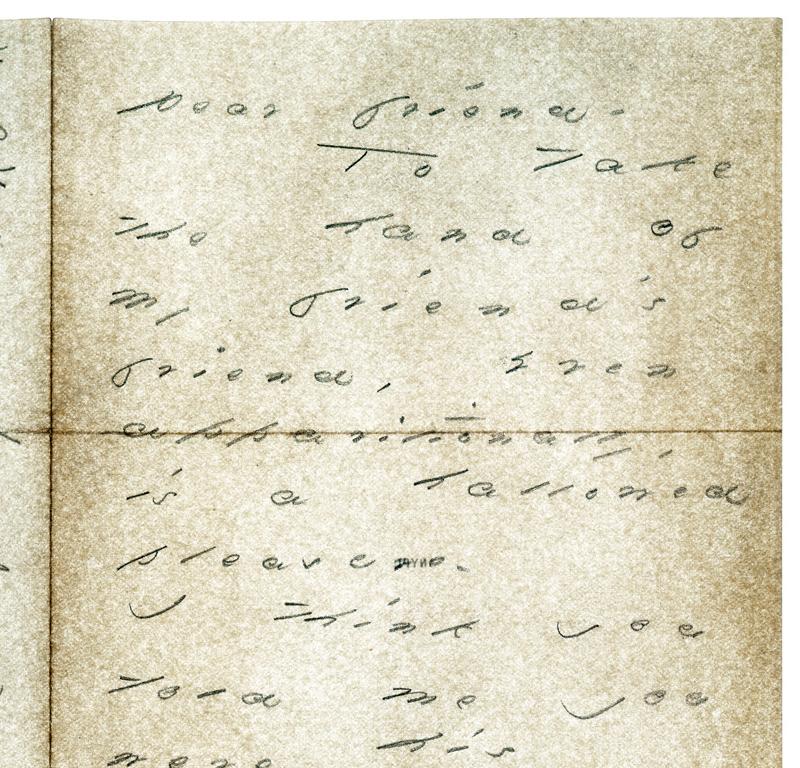 Dear friend -
To take
the hand of
my friend's
friend, even
apparitionally,
is a hallowed
pleasure.
I think you
told me you
were his